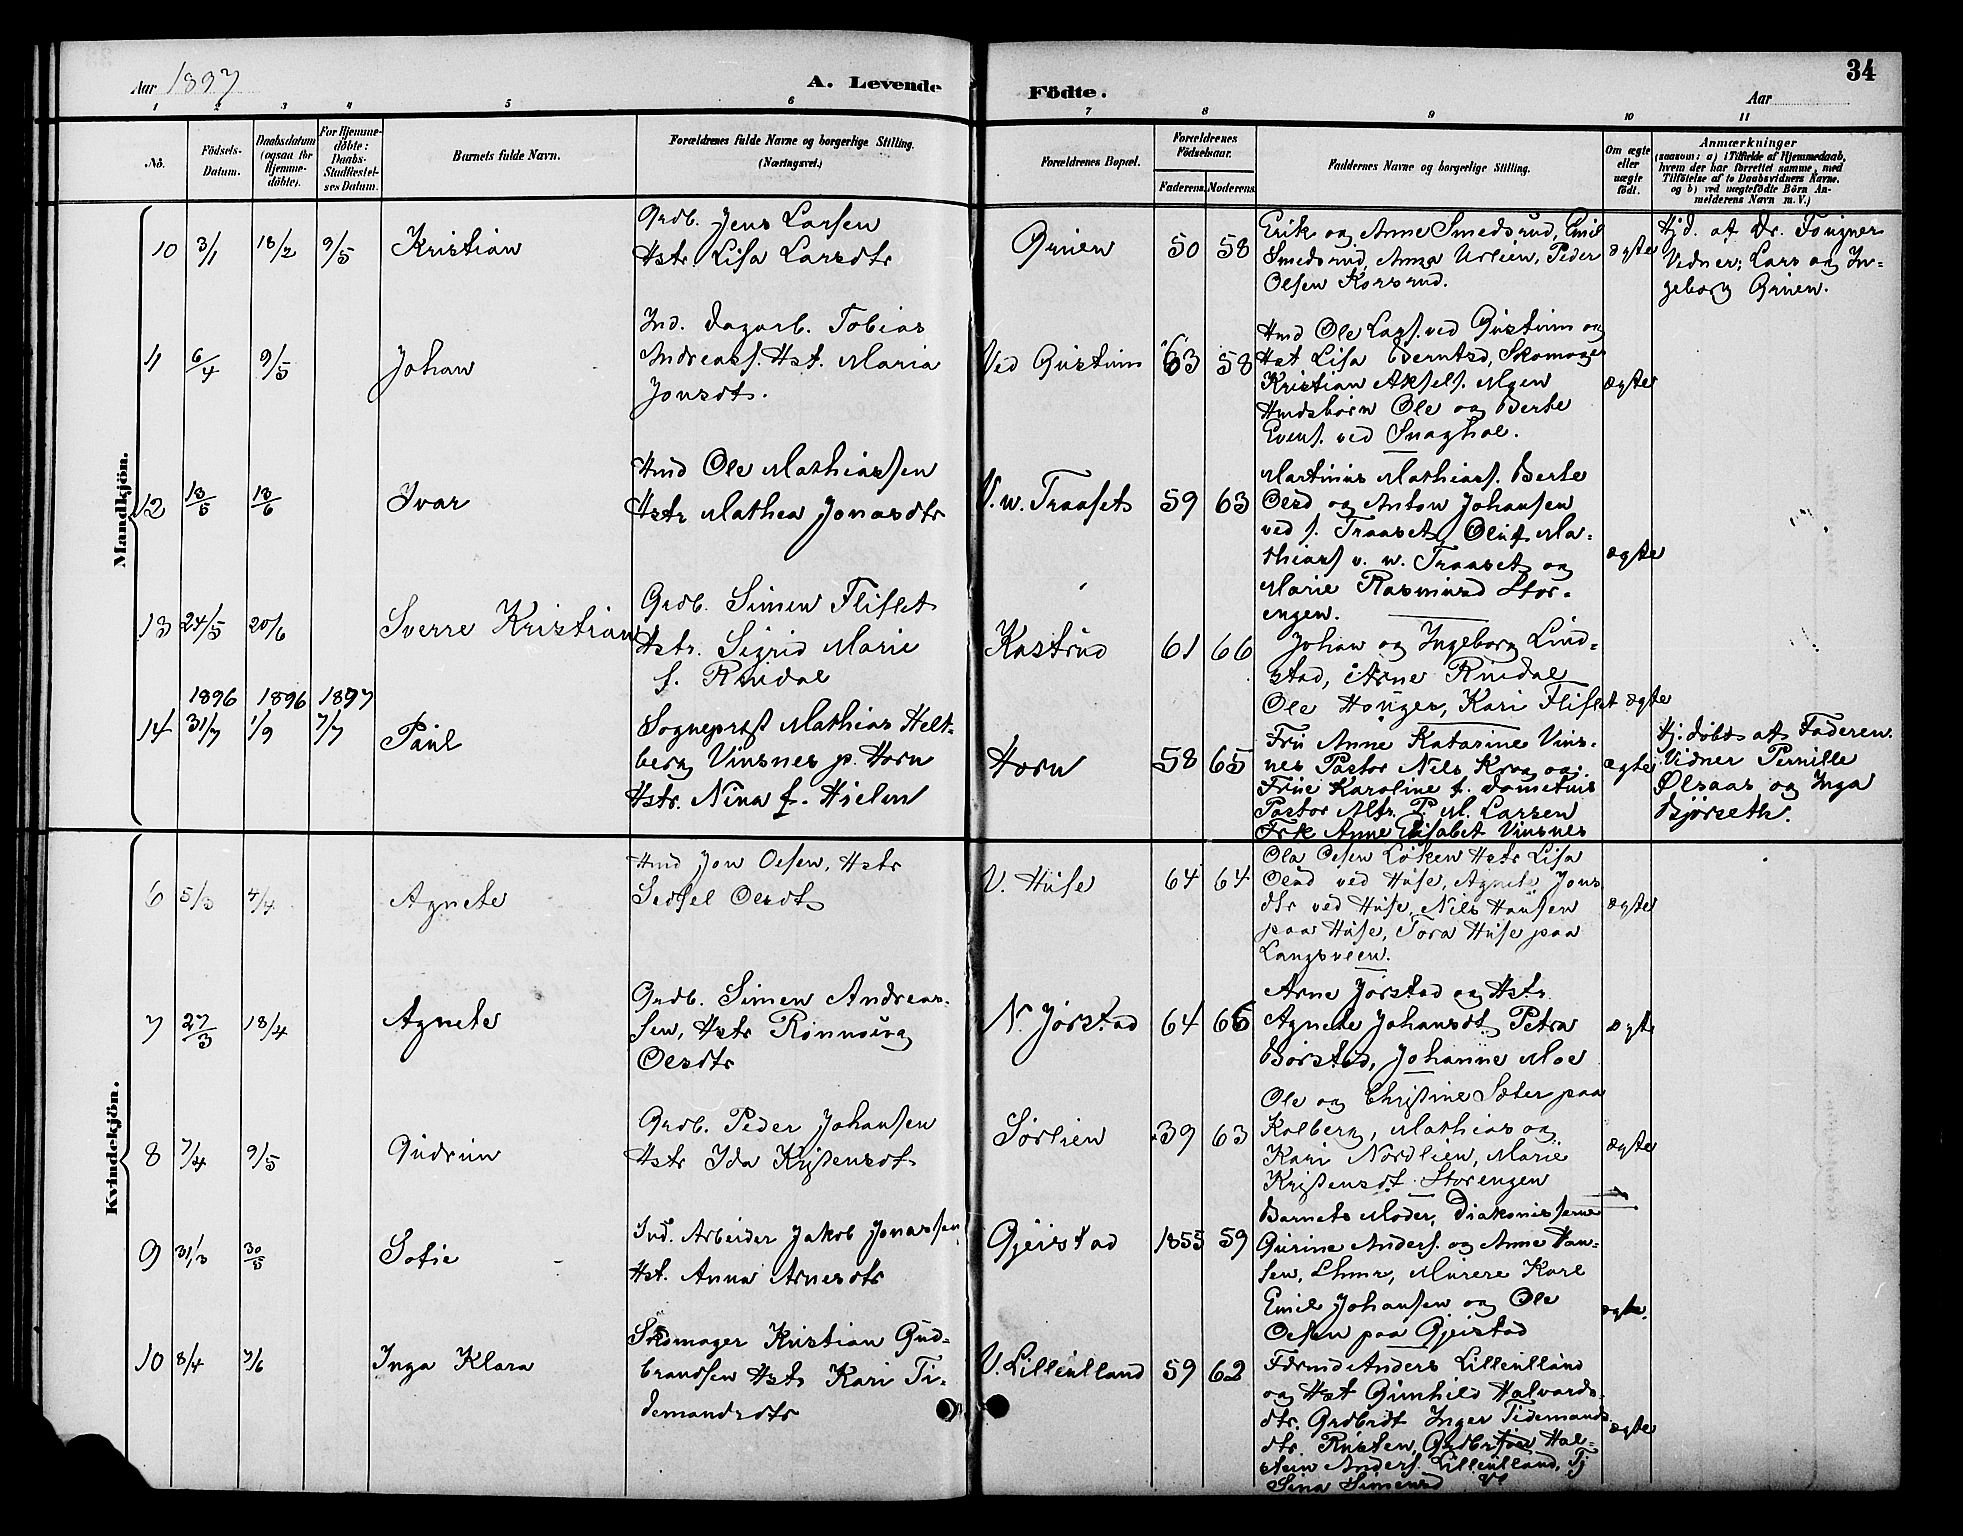 34
Aar 1897
A. Levende Födte.
Aar
1 2 3 4 5 6 7 8 9 10 11
No.
Födsels-
Datum.
Daabsdatum
(ogsaa for
Hjemme-
döbte).
For Hjemme-
döbte:
Daabs-
Stadfæstel-
ses Datum.
Barnets fulde Navn.
Forældrenes fulde Navne og borgerlige Stilling.
(Næringsvei.)
Forældrenes Bopæl.
Forældrenes
Födselsaar.
Faderens. Moderens.
Faddernes Navne og borgerlige Stilling.
Om ægte
eller
uægte
födt.
Anmærkninger
(saasom: a) i Tilfælde af Hjemmedaab,
hvem der har forrettet samme, med
Tilföielse af to Daabsvidners Navne.
og b) ved uægtefödte Börn An-
melderens Navn m. V.)
Mandkjön.
10 3/1 18/2 9/5 Kristian
Grdb. Jens Larsen
Hstr. Lisa Larsdtr
Gruen 50 58
Erik og Anne Smedsrud, Emil
Smedsrud, Anna Urlien, Peder
Olsen Korsrud.
ægte
Hjd. af Dr. Fougner
Vidner; Lars og In-
geborg Gruen.
11 6/4 9/5 Johan
Ind. Dagarb. Tobias
Andreass. Hst. Maria
Jonsdt.
Ved Gustum 63 58
Hmd Ole Lars. ved Gustum og
Hst Lisa Berntsd, Skomager
Kristian Aksels. Moen
Hmdsbørn Ole og Berte
Evens. ved Snaghol.
ægte
12 13/5 13/6 Ivar
Hmd Ole Mathiassen
Hstr Mathea Jonasdtr
V. w. Traaset 59 63
Martinus Mathiass. Berte
Olsd og Anton Johansen
ved s. Traaset, Oluf Ma-
thiass v. w. Traaset og
Marie Rasmusd Stor-
engen.
ægte
13 24/5 20/6 Sverre Kristian
Grdb. Simen Fliflet
Hstr. Sigrid Marie
f. Rindal
Kastrud 61 66
Johan og Ingeborg Lind-
stad, Arne Rindal
Ole Honger, Kari Fliflet
ægte
1896 1896 1897
14 31/7 1/9 7/7 Paul
Sogneprest Mathias Helt-
berg Vinsnes p. Horn
Hstr. Nina f. Hielm
Horn 58 65
Fru Anne Katarine Vins-
nes Pastor Nils Krog og
Frue Karoline f.
Pastor P. M. Larsen
Frk Anne Elisabet Vinsnes
ægte
Hj. døbt af Faderen
Vidner Pernille
Ølsaas og Inga
Bjørseth.
Kvindekjön.
6 5/3 4/4 Agnete
Hmd Jon Olsen, Hstr
Sedsel Olsdt
V. Huse 64 64
Ola Olsen Løken Hstr Lisa
Olsd ved Huse, Agnete Jons
dtr ved Huse, Nils Hansen
paa Huse, Tora Huse paa
Langsveen.
ægte
7 27/3 18/4 Agnete
Grdb. Simen Andreas-
sen, Hstr Rønnaug
Olsdtr
N. Jørstad 64 66
Arne Jørstad og Hstr.
Agnete Johansdt, Petra
Børstad, Johanne Moe
ægte
8 7/4 9/5 Gudrun
Grdb. Peder Johansen
Hstr Ida Kristensdt
Sørlien 39 63
Ole og Christine Sæter paa
Kolberg, Mathias og
Kari Nordlien, Marie
Kristensdt. Storengen
ægte
9 31/3 30/5 Sofie
Ind. Arbeider Jakob Jonassen
Hst. Anna Arnesdtr
Gjeistad 1855 59
Barnets Moder, Diakonisserne
Gurine Anders. og Anne Han-
sen, Lhmr, Murere Karl
Emil Johansen og Ole
Olsen paa Gjeistad
ægte.
10 8/4 7/6 Inga Klara
Skomager Kristian Gud-
brandsen Hst. Kari Ti-
demandsdtr
V. Lilleulland 59 62
Anders Lilleulland
og Hst Gunhild Halvards-
dtr. Grdbrdt Inger Tidemands
dtr. Rusten, Hal-
stein Anders. Lilleulland, Tj
Sina Simensd
ægte